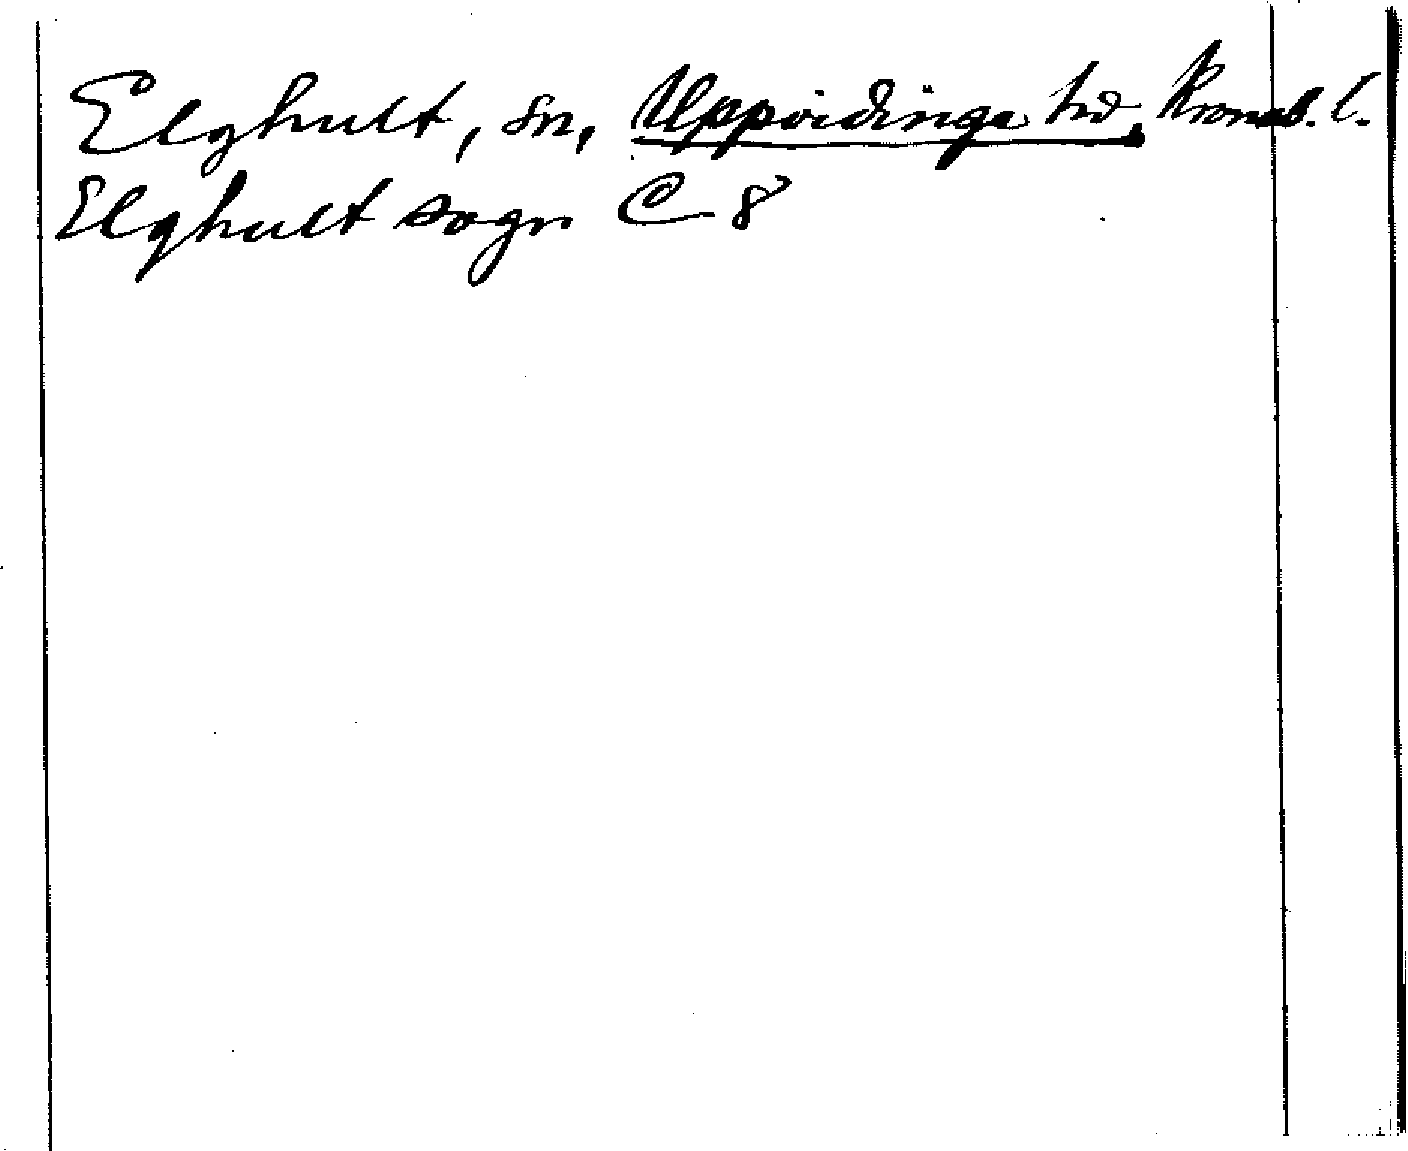 Elghult, sn, Uppvidinga hd, Kronob. l.
Elghult sogn C 8